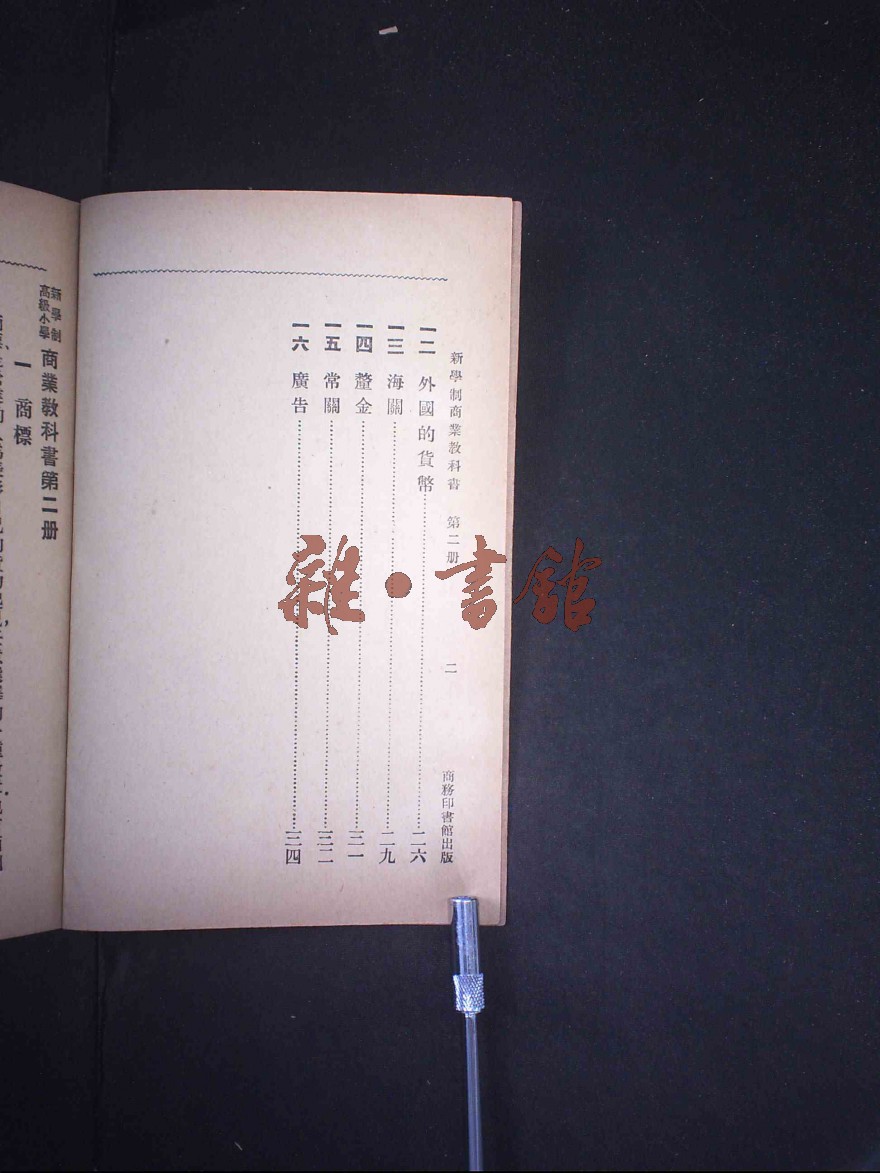 新學制商業教科書 第二册 二 商務印書館出版
一二 外國的貨幣 二六
一三 海關 二九
一四 釐金 三一
一五 常關 三二
一六 廣告 三四
新學制
高級小學
商業教科書第二册
一 商標
雜·書館